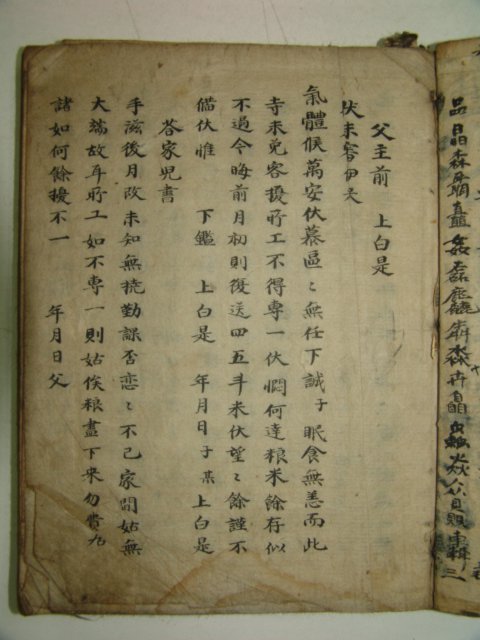 品晶森矗姦磊麤犇淼卉蟲焱众贔轟
父主前　上白是
伏未審伊天
氣體候萬安伏慕區〻無任下誠子眠食無恙而此
寺未免客擾所工不得專一伏悶何達粮米餘存似
不過今晦前月初則復送四五斗米伏望〻餘謹不
備伏惟　下鑑　上白是　年月日子某上白是
答家児書
手滋後月改未知無撓勤課否恋〻不已家間姑無
大端故耳所工如不專一則姑俟粮盡下来勿費
諸如何餘擾不一　年月日父